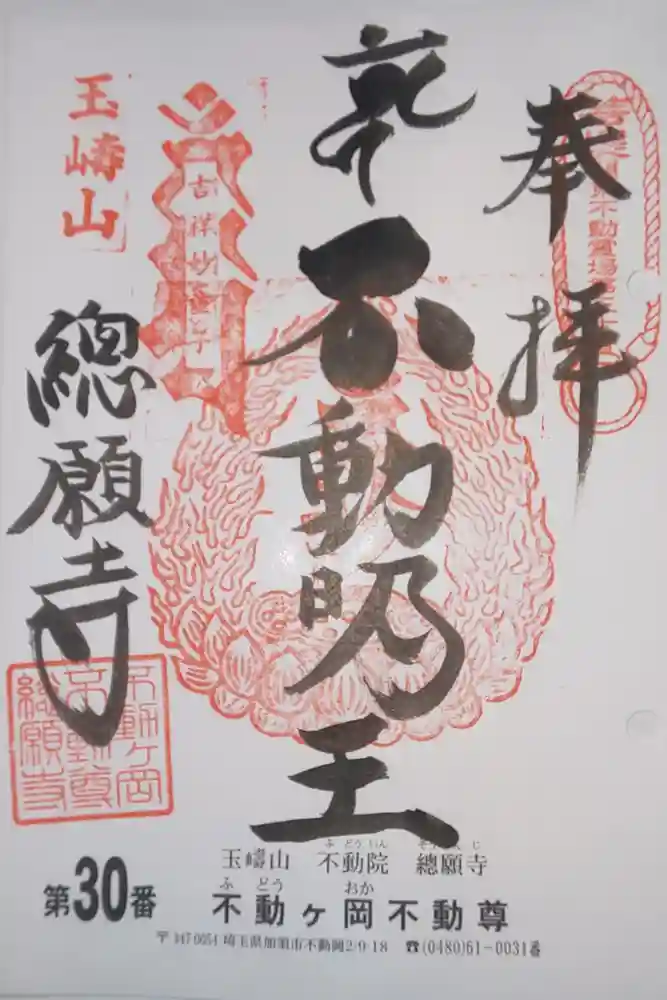 奉拝
不動明王
玉嶹山
吉祥妙童子
總願寺
不動ヶ岡
不動尊
總願寺
玉嶹山 不動院 總願寺
第30番
不動ヶ岡不動尊
〒347-0054 埼玉県加須市不動岡2-9-18 ☎(0480)61-0031番